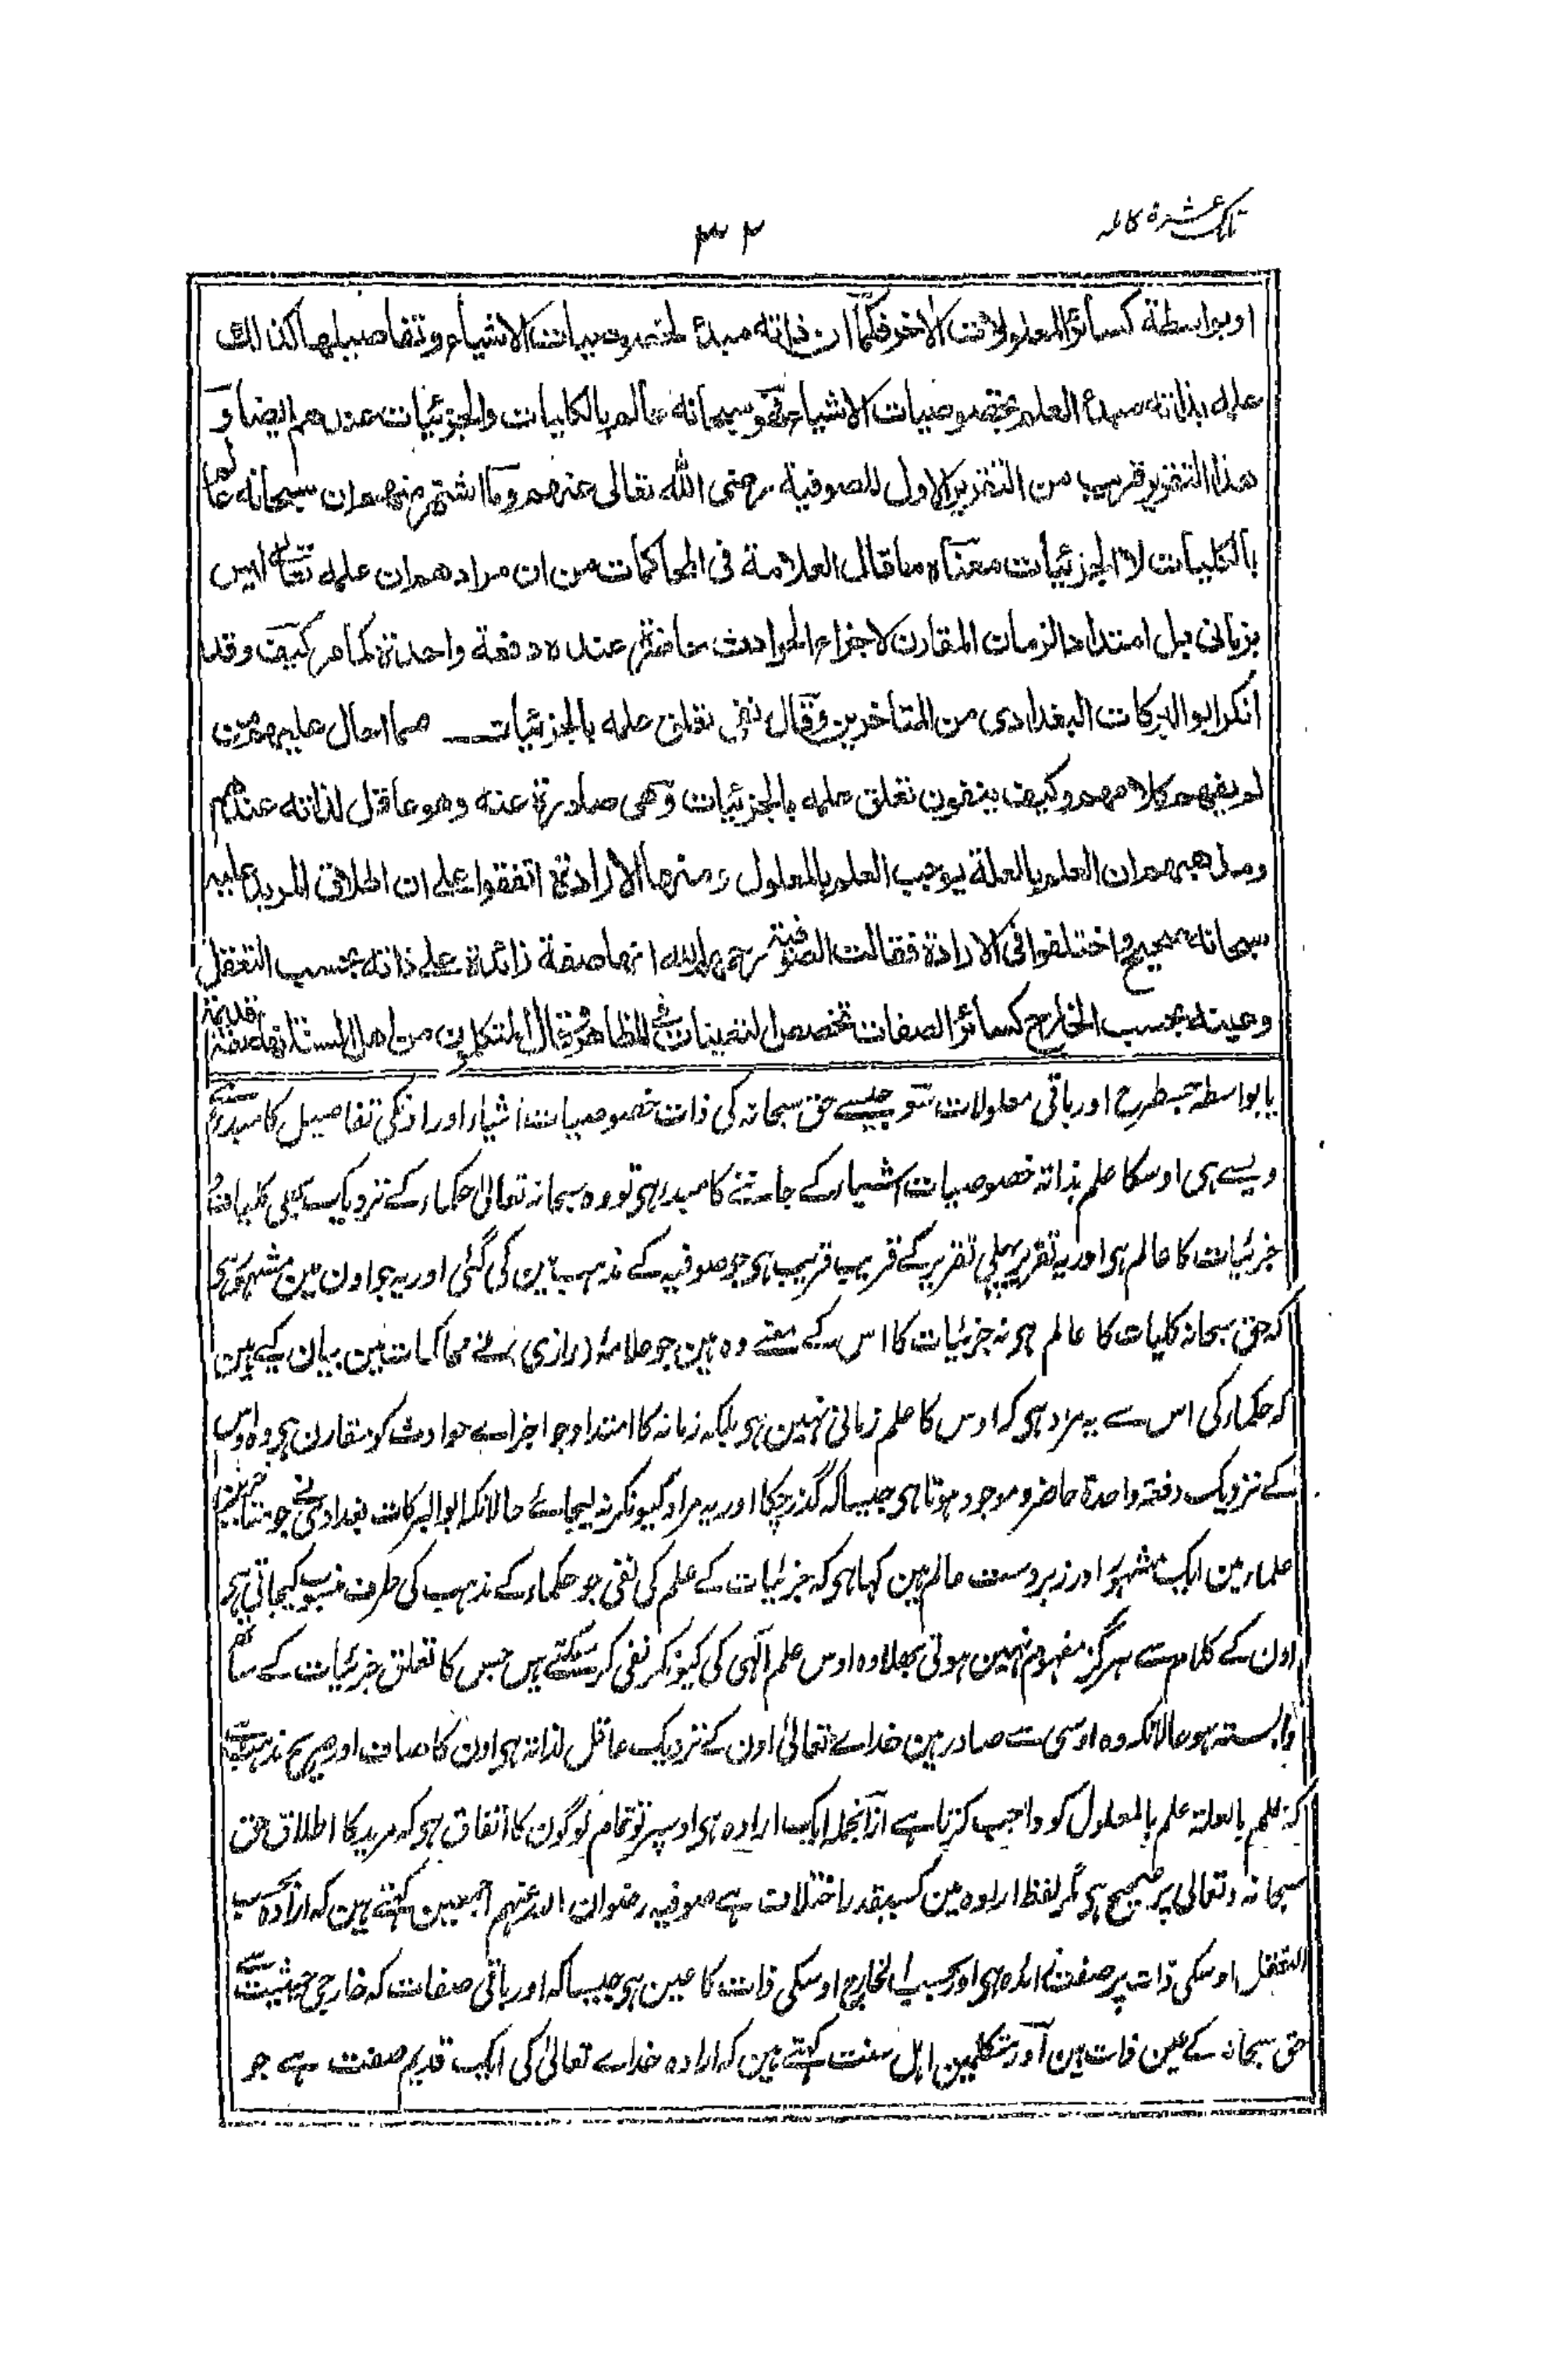 تلک عشرة کاملہ
۳۲
او بواسطة کسائر المعلولات الاخر فکما ان ذاته مبدء لخصوصیات الاشیاء و تفاصیلها کذالک
علمه بذاته مبدء العلم بخصوصیات الاشیاء فهو سبحانه عالم بالکلیات والجزئیات عندهم ایضا و
هذا التقریر قریب من التقریر الاول للصوفیة رضی الله تعالی عنهم وما اشتهر منهم ان سبحانه عالم
بالکلیات لا الجزئیات معناه ما قال العلامة فی المحاکمات من ان مرادهم ان علمه تعالی لیس
بزمانی بل امتداد الزمان المقارن لاجزاء الحوادث حاضر عنده دفعة واحدة کما مر کیف وقد
انکر ابو البرکات البغدادی من المتاخرین وقال نفی تعلق علمه بالجزئیات مما احال علیهم من
لم یفهم کلامهم وکیف ینفون تعلق علمه بالجزئیات وهی صادرة عنه وهو عاقل لذاته عندهم
ومذهبهم ان العلم بالعلة یوجب العلم بالمعلول ومنها الارادة اتفقوا علے ان اطلاق المرید علیه
سبحانه صحیح واختلفوا فی الارادة فقالت الصوفیة رحمهم الله انها صفة زائدة علے ذاته بحسب التعقل
وعینه بحسب الخارج کسائر الصفات تخصص التعینات فی المظاهر وقال المتکلمون من اهل السنة انها صفة قدیمة
یا بواسطہ جسطرح اور باقی معلولات تو جیسے حق سبحانہ کی ذات خصوصیات اشیاء اور انکی تفاصیل کا مبدء ہے
ویسے ہی اوسکا علم بذاتہ خصوصیات اشیاء کے جاننے کا مبدء ہی تو وہ سبحانہ تعالیٰ حکماء کے نزدیک بھی کلیات و
جزئیات کا عالم ہی اور یہ تقریر پہلی تقریر کے قریب قریب ہی جو صوفیہ کے مذہب مین کی گئی اور یہ جو اون مین مشہور ہی
کہ حق سبحانہ کلیات کا عالم ہی نہ جزئیات کا اس کے معنے وہ ہین جو علامہ (رازی) نے محاکمات مین بیان کیے ہین
کہ حکماء کی اس سے یہ مراد ہی کہ اوس کا علم زمانی نہین ہی بلکہ زمانہ کا امتداد جو اجزاے حوادث کو مقارن ہی وہ اوس
کے نزدیک دفعۃ واحدۃ حاضر و موجود ہوتا ہی جیسا کہ گذر چکا اور یہ مراد کیونکر نہ لیجائے حالانکہ ابو البرکات بغدادی نے جو متاخرین
علماء مین ایک مشہور اور زبردست عالم ہین کہا ہی کہ جزئیات کے علم کی نفی جو حکماء کے مذہب کی طرف منسوب کیجاتی ہی
اون کے کلام سے ہرگز مفہوم نہین ہوتی بھلا وہ اوس علم الٰہی کی کیونکر نفی کر سکتے ہین جس کا تعلق جزئیات کے ساتھ
وابستہ ہو حالانکہ وہ اوسی سے صادر ہین خداے تعالیٰ اون کے نزدیک عاقل لذاتہ ہی اون کا صاف اور صریح مذہب ہے
کہ علم بالعلۃ علم بالمعلول کو واجب کرتا ہے ازآنجملہ ایک ارادہ ہی اوسپر تو تمام لوگون کا اتفاق ہی کہ مرید کا اطلاق حق
سبحانہ وتعالی پر صحیح ہی مگر لفظ ارادہ مین کسیقدر اختلاف ہے صوفیہ رضوان اللہ عنہم اجمعین کہتے ہین کہ ارادہ بحسب
التعقل اوسکی ذات پر صفت زائدہ ہی اور بحسب الخارج اوسکی ذات کا عین ہی جیسا کہ اور باقی صفات کہ خارجی حیثیت سے
حق سبحانہ کے عین ذات ہین اور متکلمین اہل سنت کہتے ہین کہ ارادہ خداے تعالیٰ کی ایک قدیم صفت ہے جو